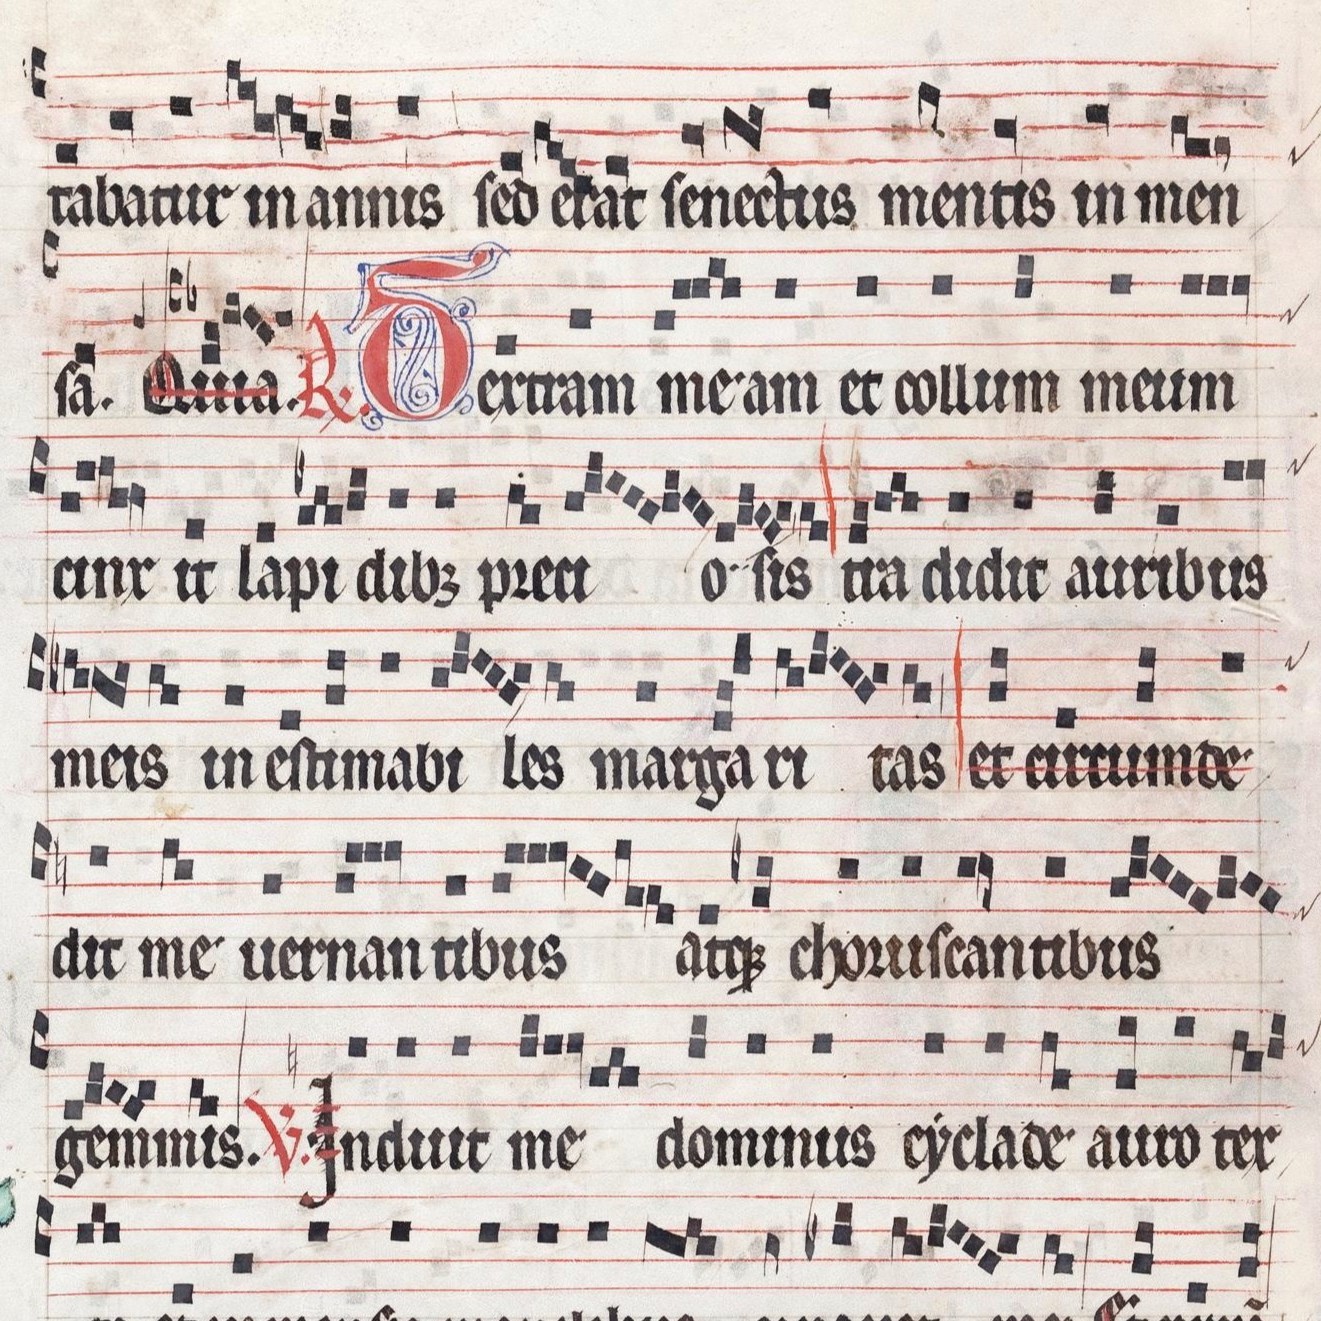 tabatur in annis sed erat senectus mentis in men
sa. Quia. R. Dextram meam et collum meum
cinx it lapi dibꝫ preci o sis tra didit auribus
meis in estimabi les marga ri tas et circumde
dit me uernan tibus atqꝫ choruscantibus
gemmis. V. Induit me dominus cyclade auro tex